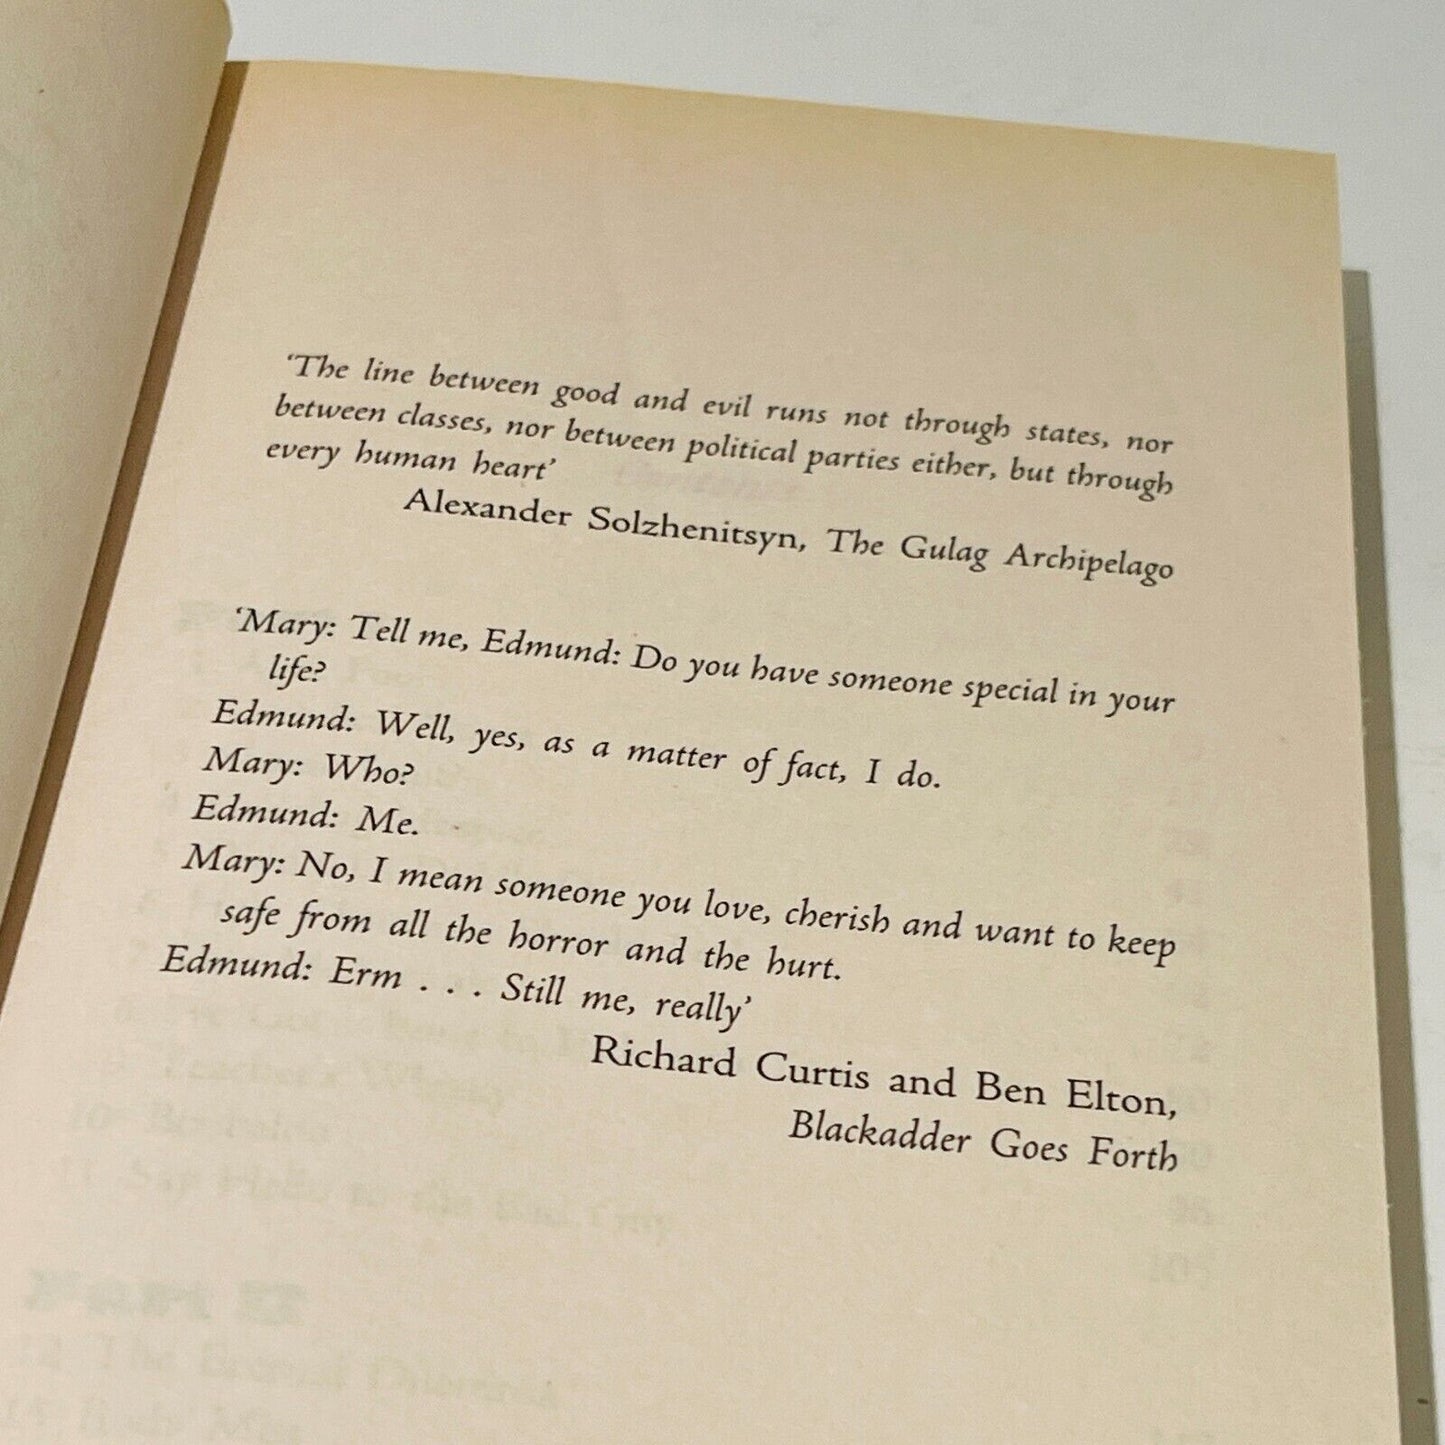 ‘The line between good and evil runs not through states, nor
between classes, nor between political parties either, but through
every human heart’
Alexander Solzhenitsyn, The Gulag Archipelago
‘Mary: Tell me, Edmund: Do you have someone special in your
life?
Edmund: Well, yes, as a matter of fact, I do.
Mary: Who?
Edmund: Me.
Mary: No, I mean someone you love, cherish and want to keep
safe from all the horror and the hurt.
Edmund: Erm . . . Still me, really’
Richard Curtis and Ben Elton,
Blackadder Goes Forth